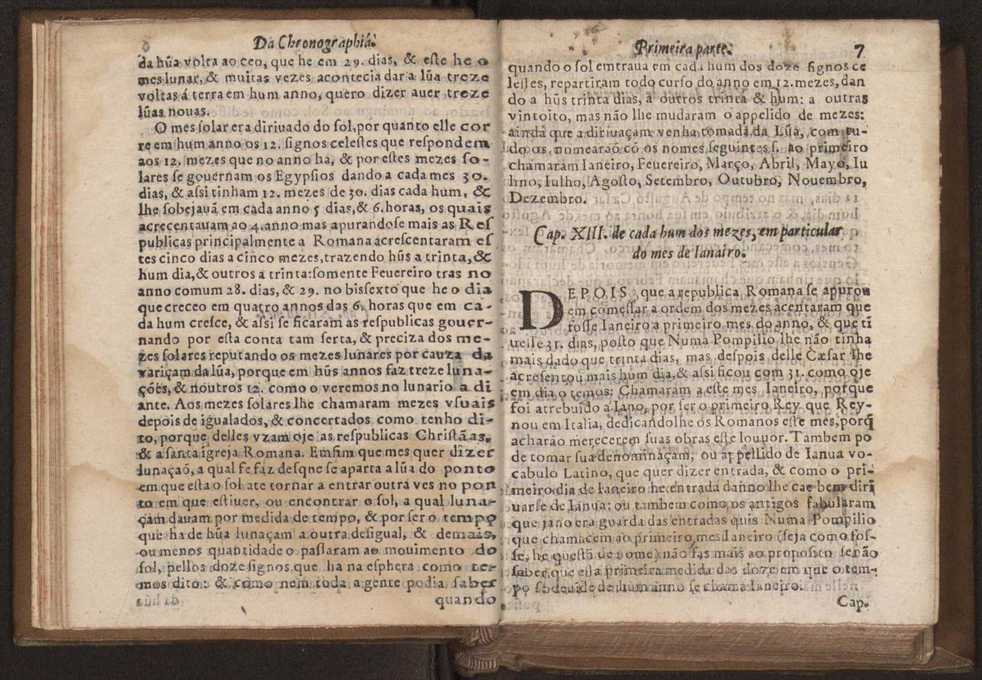 6
Da Chronographia.
da hũa volta ao ceo, que he em 29. dias, & este he o
mes lunar, & muitas vezes acontecia dar a lũa treze
voltas á terra em hum anno, quero dizer auer treze
lũas nouas.
O mes solar era diriuado do sol, por quanto elle cor
re em hum anno os 12. signos celestes que respondem
aos 12. mezes que no anno ha, & por estes mezes so-
lares se gouernam os Egypsios dando a cada mes 30.
dias, & assi tinham 12. mezes de 30. dias cada hum, &
lhe sobejauã em cada anno 5 dias, & 6. horas, os quais
acrecentauam ao 4. anno mas apurandose mais as Res
publicas principalmente a Romana acrescentaram es
tes cinco dias a cinco mezes, trazendo hũs a trinta, &
hum dia, & outros a trinta: somente Feuereiro tras no
anno comum 28. dias, & 29. no bissexto que he o dia
que creceo em quatro annos das 6. horas que em ca-
da hum cresce, & assi se ficaram as respublicas gouer-
nando por esta conta tam serta, & preciza dos me-
zes solares reputando os mezes lunares por cauza da
variçam da lũa, porque em hũs annos faz treze luna-
ções, & noutros 12. como o veremos no lunario a di
ante. Aos mezes solares lhe chamaram mezes vsuais
depois de igualados, & concertados como tenho di-
to, porque delles vzam oje as respublicas Christãas,
& a santa igreja Romana. Emfim que mes quer dizer
lunaçaõ, a qual se faz desque se aparta a lũa do ponto
em que esta o sol ate tornar a entrar outra ves no pon
to em que estiuer, ou encontrar o sol, a qual luna-
çam dauam por medida de tempo, & por ser o tempo
que ha de hũa lunaçam a outra desigual, & demais,
ou menos quantidade o passaram ao mouimento do
sol, pellos doze signos que ha na esphera como ter-
mos dito: & como nem toda a gente podia saber
quando
Primeira parte.
7
quando o sol emtraua em cada hum dos doze signos ce
lestes, repartiram todo curso do anno em 12. mezes, dan
do a hũs trinta dias, a outros trinta & hum: a outras
vintoito, mas não lhe mudaram o appelido de mezes:
ainda que a diriuaçam venha tomada da Lũa, com tu-
do os nomearaõ cõ os nomes seguintes s. ao primeiro
chamaram Ianeiro, Feuereiro, Março, Abril, Mayo, Iu
nho, Iulho, Agosto, Setembro, Outubro, Nouembro,
Dezembro.
Cap. XIII. de cada hum dos mezes, em particular
do mes de Ianairo.
DEPOIS que a republica Romana se apurou
em comessar a ordem dos mezes acentaram que
fosse Ianeiro a primeiro mes do anno, & que ti
uesse 31. dias, posto que Numa Pompilio lhe não tinha
mais dado que trinta dias, mas despois delle Cæsar lhe
acresentou mais hum dia, & assi ficou com 31. como oje
em dia o temos: Chamaram a este mes Ianeiro, porque
foi atrebuido a Iano, por ser o primeiro Rey que Rey-
nou em Italia, dedicandolhe os Romanos este mes, porq̃
acharão merecerem suas obras este louuor. Tambem po
de tomar sua denominaçam, ou appellido de Ianua vo-
cabulo Latino, que quer dizer entrada, & como o pri-
meiro dia de Ianeiro he entrada danno lhe cae bem diri
uarse de Ianua: ou tambem como os antigos fabularam
que jano era guarda das entradas quis Numa Pompilio
que chamacem ao primeiro mes Ianeiro (seja como fos-
se, he questã de nome) não fas mais ao proposito senão
saber, que esta primeira medida das doze em que o tem-
po se deuide de hum anno se chama Ianeiro.
Cap.